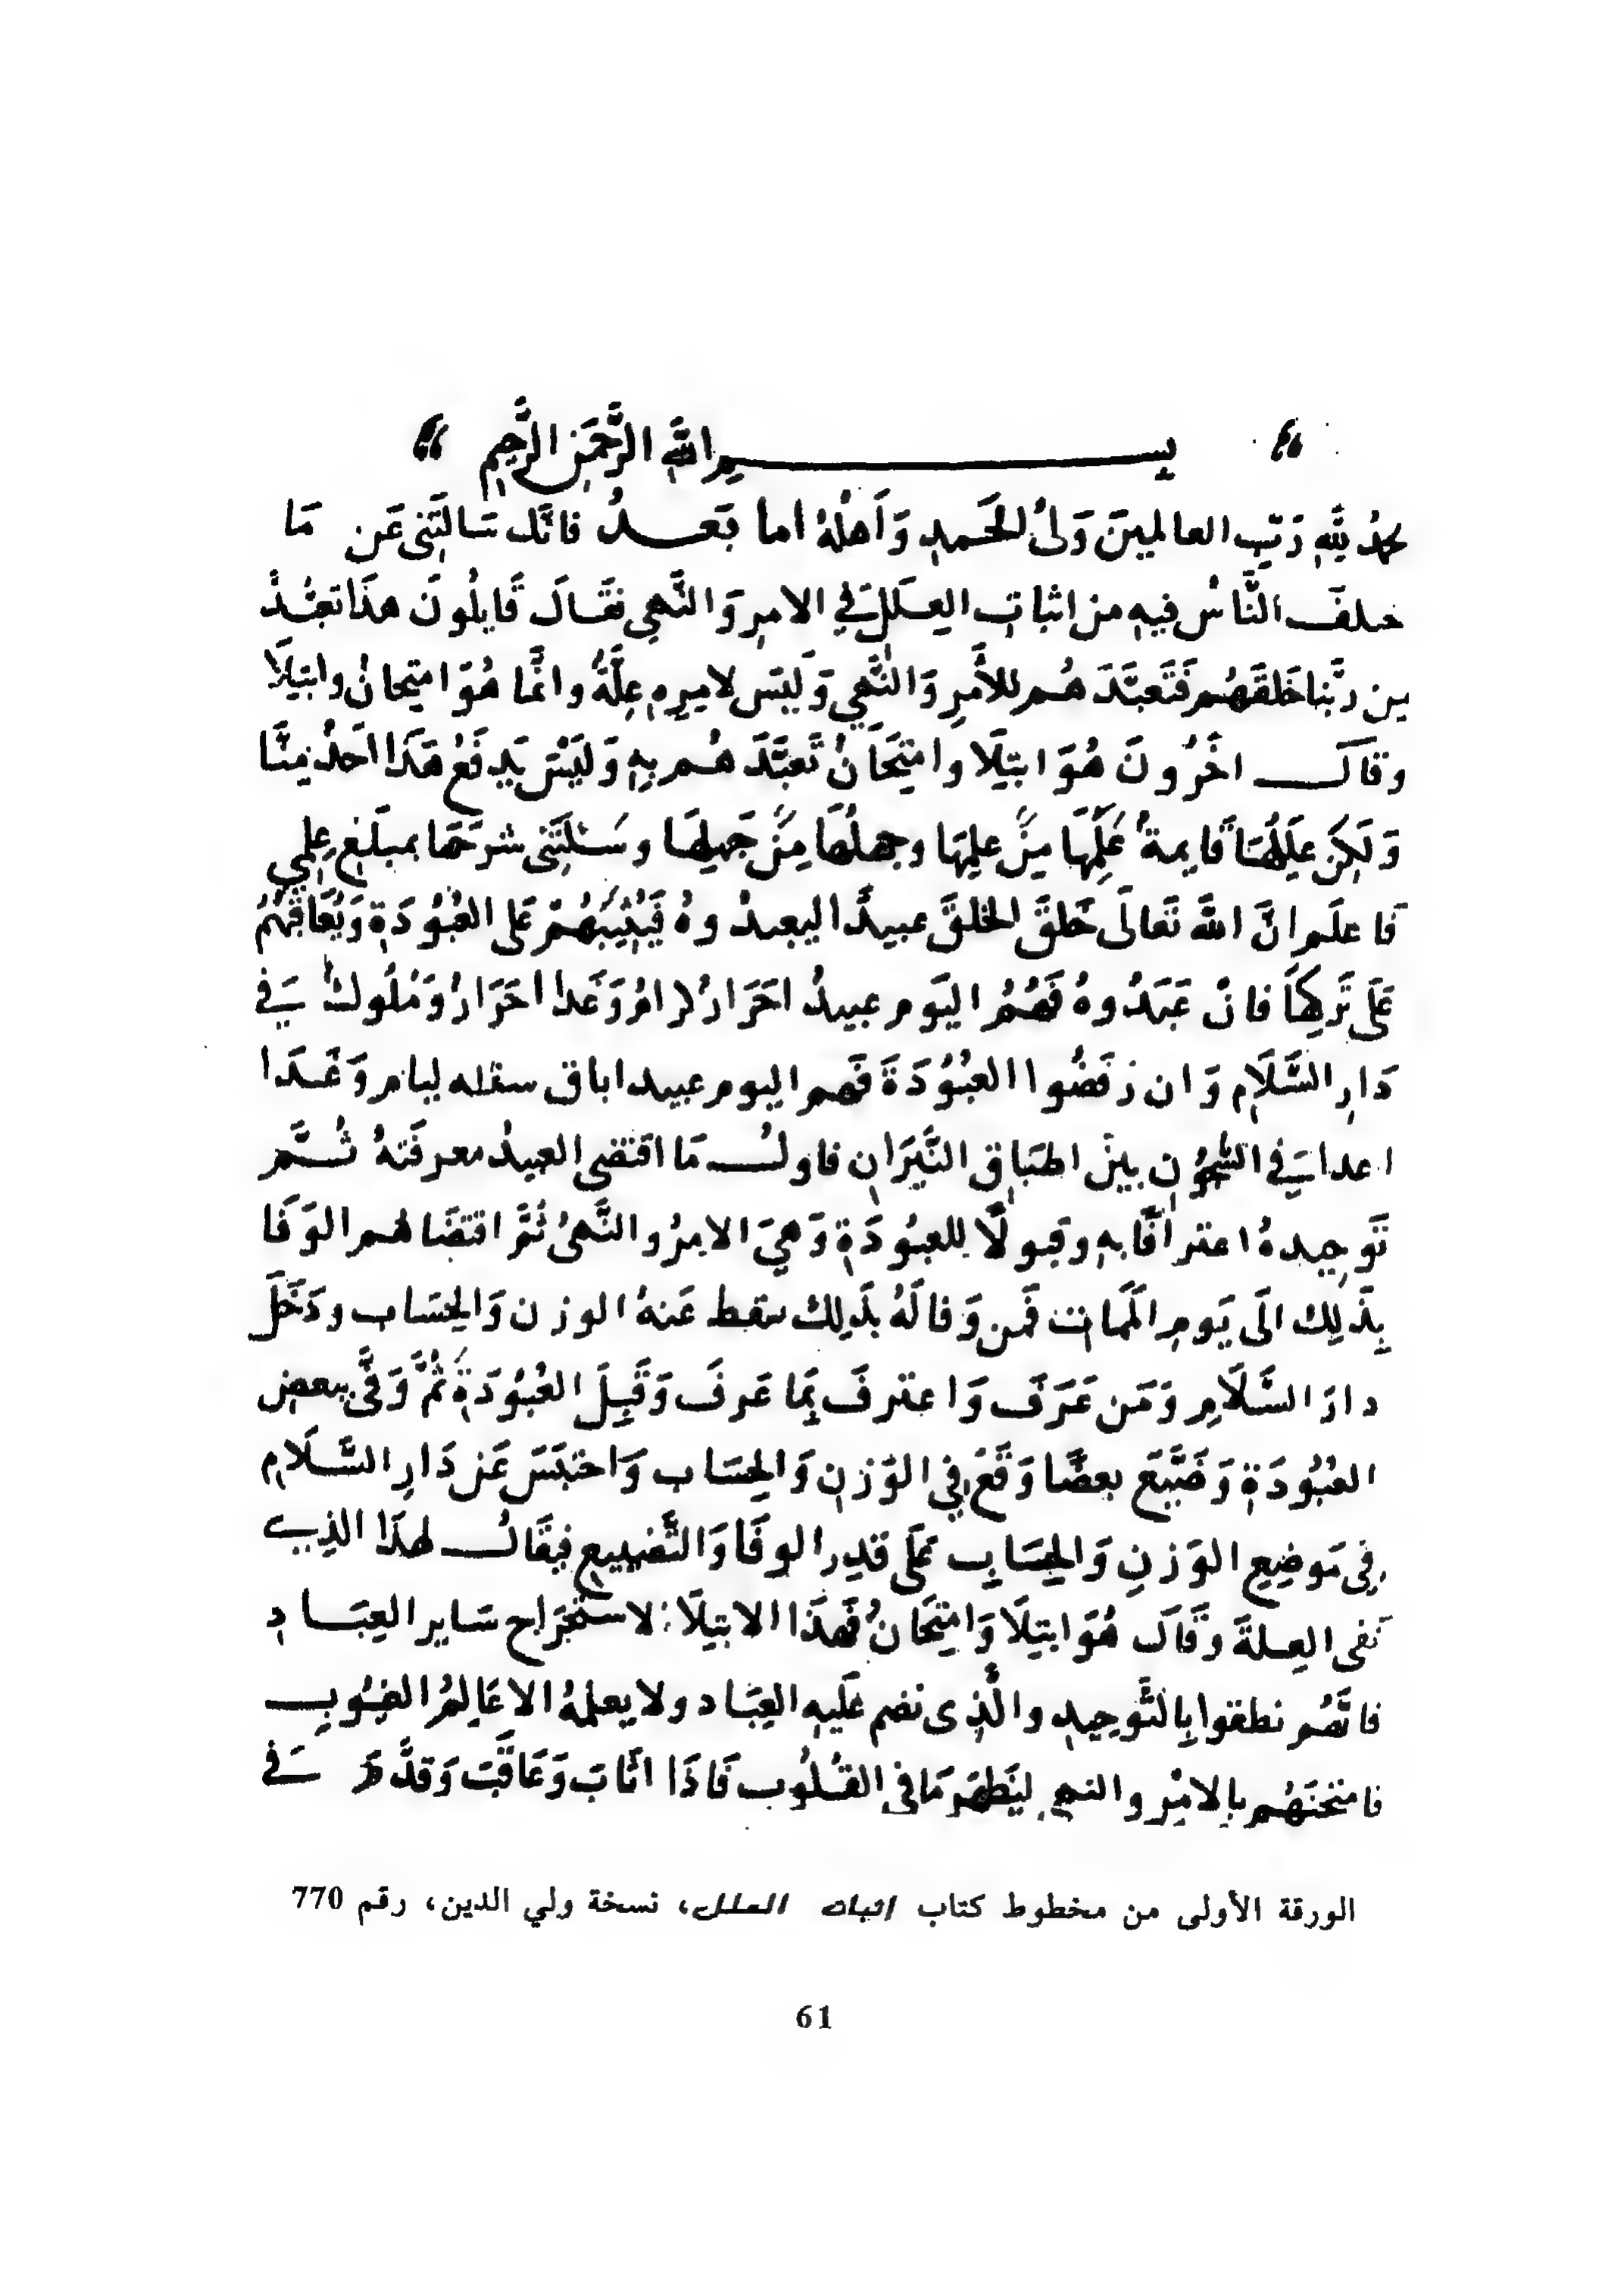 بسم الله الرَّحمَن الرَّحِيم
لحمدُ لِلّه رَبِّ العالمينَ وَلىُّ الحَمدِ وَأَهْلُهُ اما بَعدُ فانّك سَالتَنى عَن مَا
ختلفَ النَّاسُ فيه من اثبات العِلَل فى الامرِ وَالنَّهى فقَالَ قَايلُونَ هذَا تعبُّدٌ
من ربّنا خَلقَهُم فَتَعبَّدَ هُم للأَمرِ وَالنَّهى وَلَيسَ لامرِه عِلَّةٌ وانَّما هُوَ امتِحانٌ وابتِلَا
وقَالَ اخَرُونَ هُوَ ابتِلَا وامتِحَانٌ تَعبَّدَ هُم بِهِ وَلَيْسَ يَدفَعُ هَذَا احَدٌ مِنَّا
وَلَكِن عِلَلُهَا قَايمةٌ عَلِمَهَا مَن علِمَهَا وجهلهَا مَن جَهِلهَا وسَئلتَنى شرحَهَا بمبلَغ عِلمِى
فَاعلَم انَّ اللّهَ تَعالَى خَلقَ الخلقَ عبيدًا ليعبدُوهُ فَيُثيبَهُم عَلى العُبُودَةِ وَيُعَاقبَهُم
عَلَى تَركِهَا فانْ عَبَدُوهُ فَهُمُ اليَوم عبيدٌ احَرَارٌ كرامٌ وَغَدا احَرَارٌ وَمُلُوكٌ فى
دَارِ السَّلَامِ وَان رَفَضُوا العُبُودَةَ فَهم اليوم عبيد اباق سفله ليام وَغَدَا
اعدا فى السُّجُونِ بينَ اطبَاقِ النَّيرَانِ فاولُ مَا اقتَضى العبيدُ معرفَتهُ ثُمَّ
تَوحِيدهُ اعترافًا به وقبولًا للعبُودَةِ وَهىَ الامرُ والنَّهىُ ثُمَّ اقتضَا لهم الوَفَا
بِذَلِك الَى يَومِ المَمَاتِ فَمن وَفا لَهُ بذَلِك سَقط عَنهُ الوزن وَالحِسَاب ودَخَلَ
دارَ السَّلَامِ وَمَن عَرَفَ وَاعترفَ بِمَا عَرفَ وَقَبِلَ العُبُودَةَ ثُمَّ وَفَّى ببعضِ
العُبُودَةِ وَضَيَّعَ بعضًا وَقَعَ فِى الوَزنِ وَالحِسَاب وَاحتبَسَ عَن دَارِ السَّلَامِ
فى مَوضِعِ الوَزنِ وَالحِسَابِ عَلَى قدرِ الوفَا وَالتَّضييعِ فيقَالُ لهذَا الذِى
نَفى العِلةَ وقَالَ هُوَ ابتِلَا وَامتِحَانٌ فَهذَا الابتِلَا لاستخرَاج سَاير العِبَادِ
فانَّهُم نطقوا بِالتَّوحِيدِ والَّذِى نضم عَلَيه العِبَاد ولا يعلمهُ الا عَالِمُ الغيُوبِ
فامتحنَهُم بالامْر والنهى ليَظهَرَ مَا فى القُلُوب فَاذَا اثَابَ وَعَاقَبَ وَقدَّمَ فى
الورقة الأولى من مخطوط كتاب اثبات العلل، نسخة ولي الدين، رقم 770
61